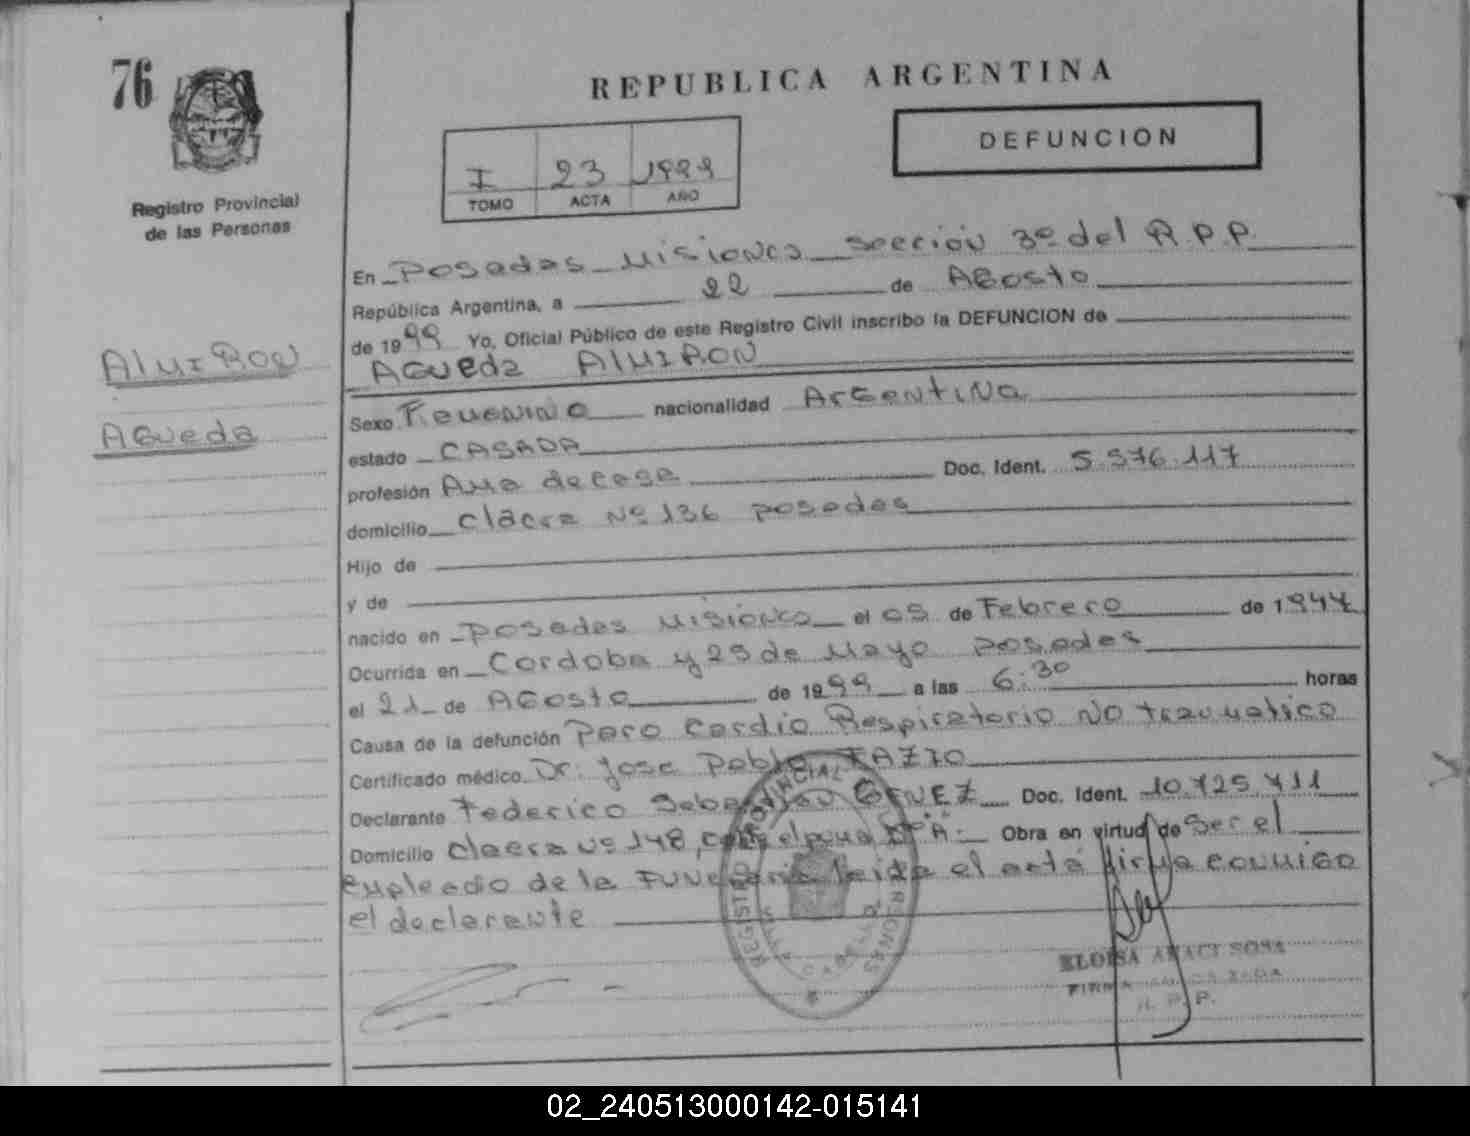 76
REPUBLICA ARGENTINA
DEFUNCION
I 23 1999
TOMO ACTA AÑO
Registro Provincial
de las Personas
AlmiRON
AGueda
En Posadas Misiones sección 3º del R.P.P.
República Argentina, a 22 de AGosto
de 1999 Yo, Oficial Público de este Registro Civil inscribo la DEFUNCION de
AGueda AlMIRON
Sexo Femenino nacionalidad Argentina
estado CASADA
profesión Ama de casa Doc. Ident. 5.576.117
domicilio chacra Nº 136 posadas
Hijo de
y de
nacido en Posadas Misiones el 05 de Febrero de 1947
Ocurrida en Cordoba y 25 de Mayo posadas
el 21 de AGosto de 1999 a las 6:30 horas
Causa de la defunción Paro Cardio Respiratorio NO traumatico
Certificado médico Dr: Jose Pablo FAZIO
Declarante Federico Sebastian GENEZ Doc. Ident. 10.725.711
Domicilio chacra Nº 148, "A" Obra en virtud de Ser el
empleadio de la Funeraria leida el acta firma conmigo
el declarante
REGISTRO PROVINCIAL PERSONAS
ELOISA ARACI SOSA
FIRMA
R. P. P.
02_240513000142-015141